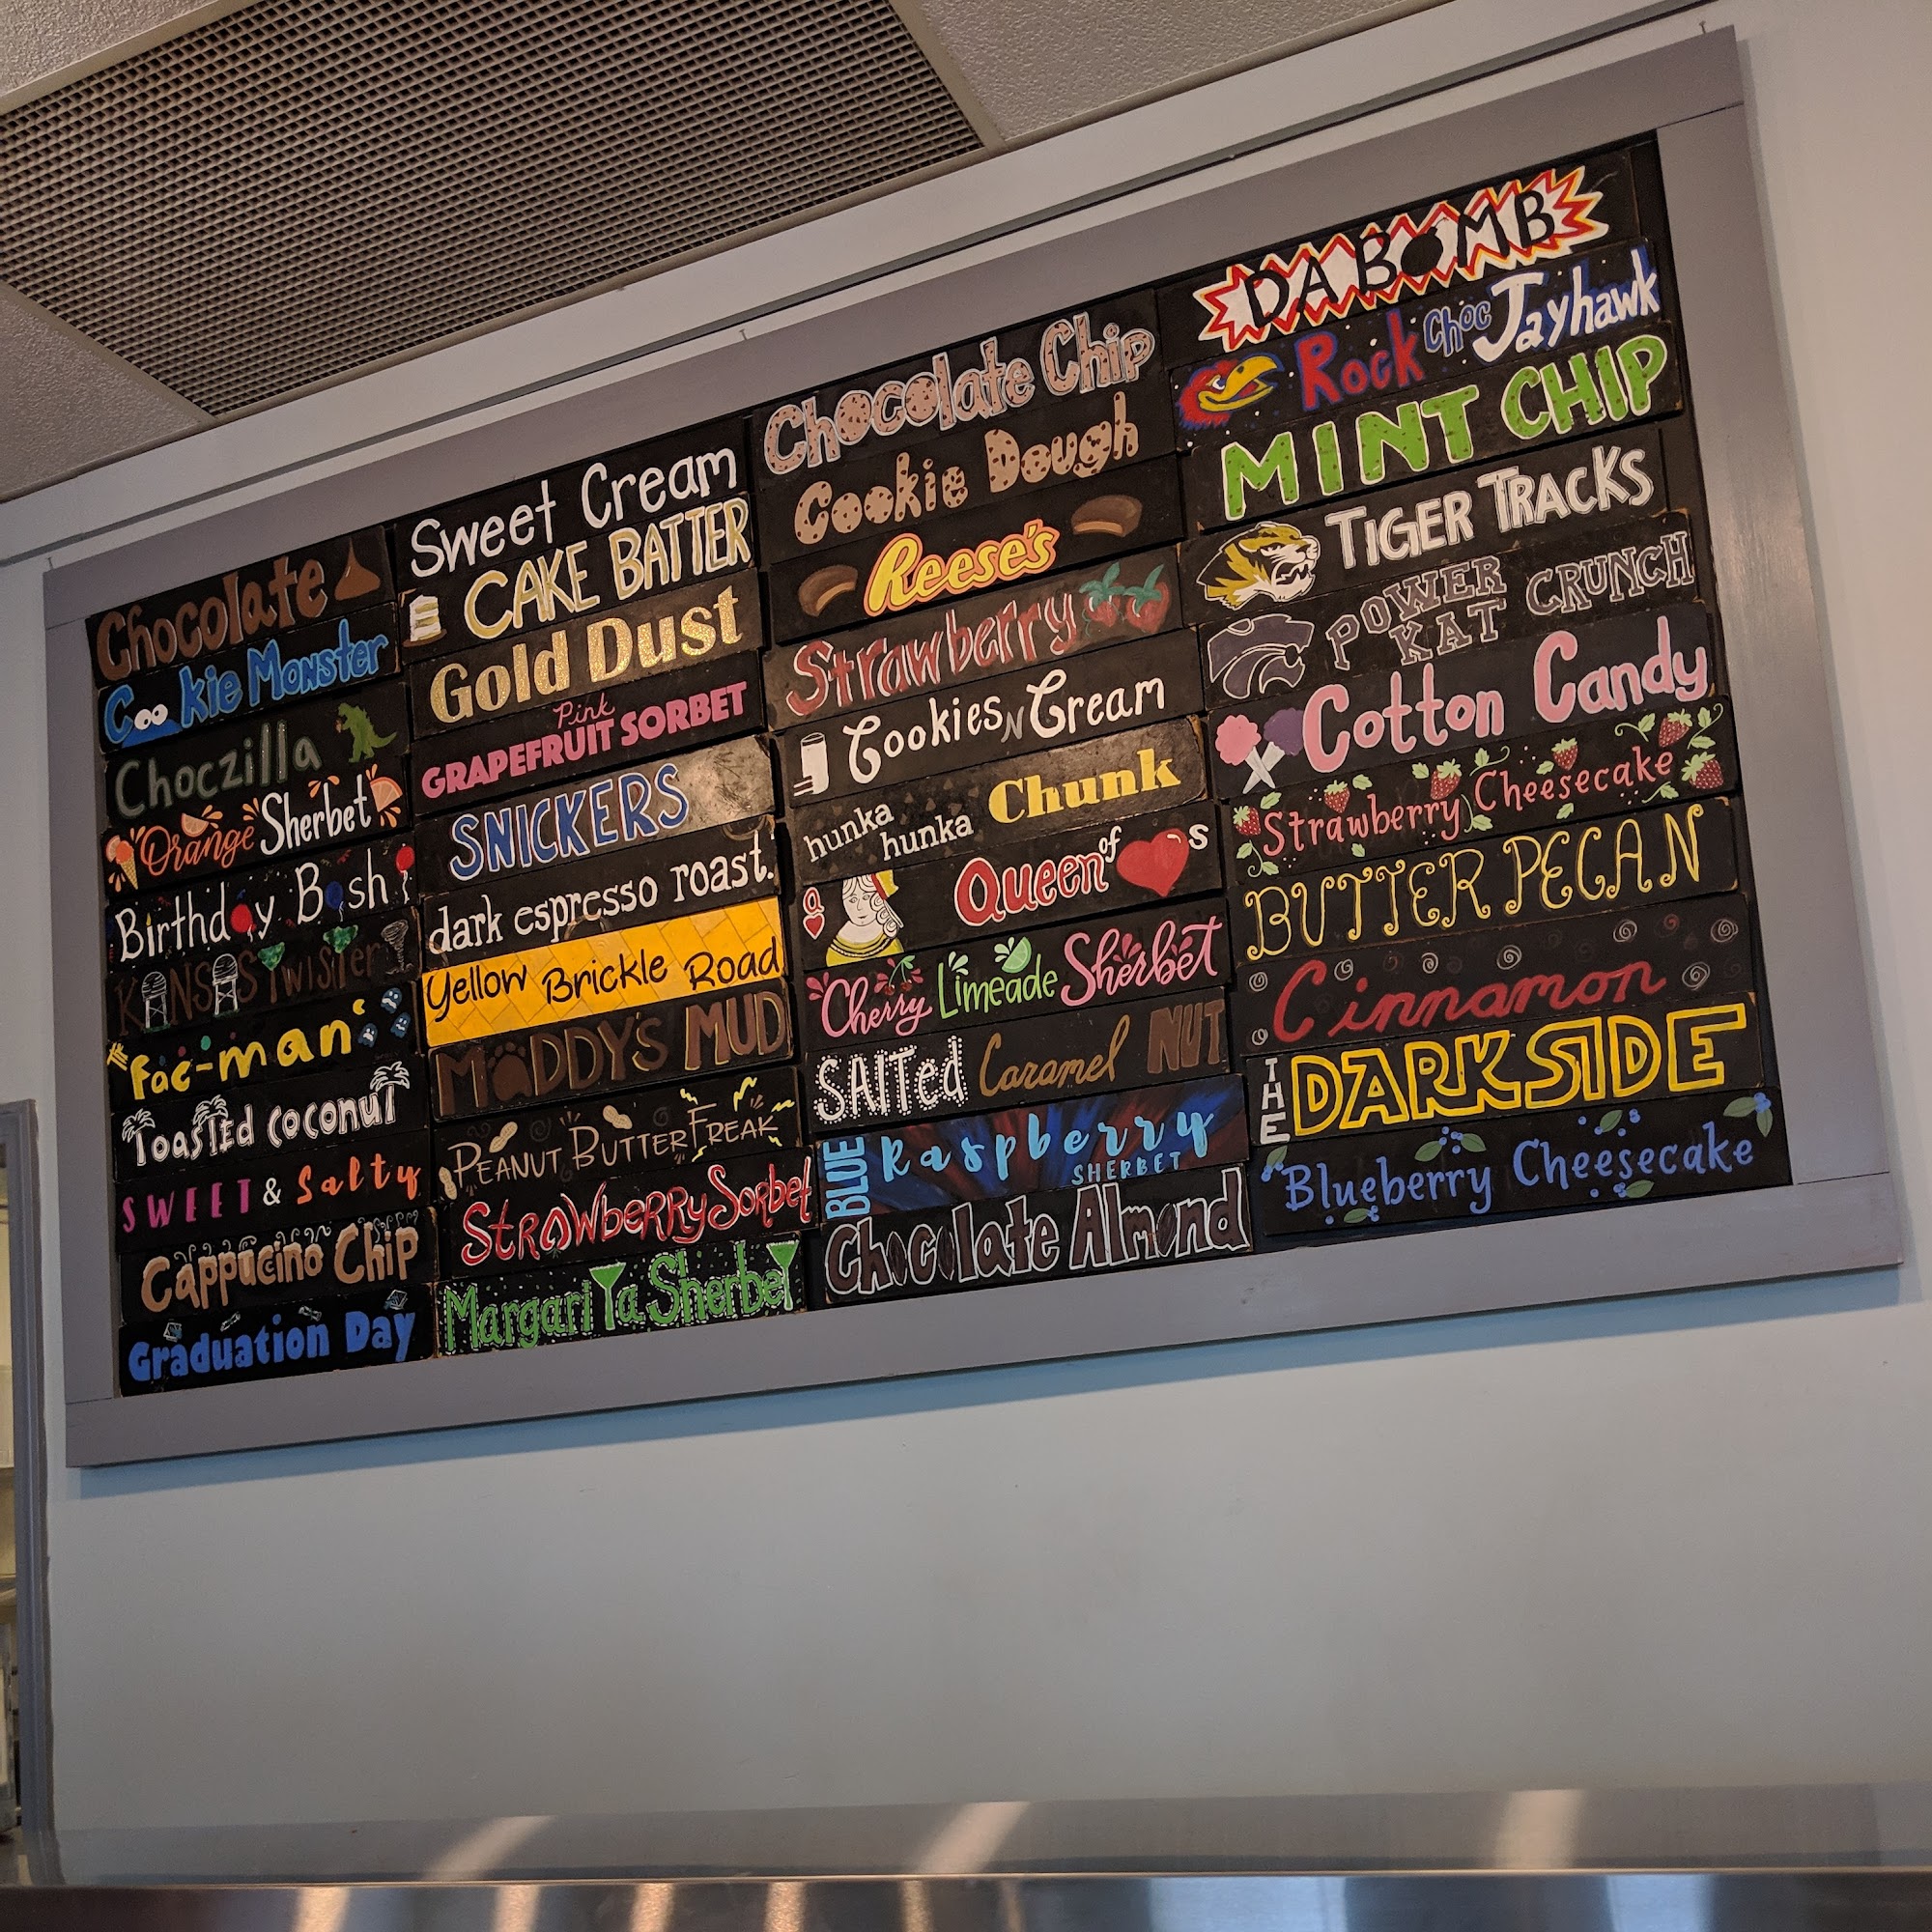 Chocolate
Cookie Monster
Choczilla
Orange Sherbet
Birthday Bash!
KANSAS TWISTER
fac-man
Toasted coconut
SWEET & Salty
Cappucino Chip
Graduation Day
Sweet Cream
CAKE BATTER
Gold Dust
Pink
GRAPEFRUIT SORBET
SNICKERS
dark espresso roast.
Yellow Brickle Road
MADDY'S MUD
PEANUT BUTTER FREAK
Strawberry Sorbet
Margarita Sherbet
Chocolate Chip
Cookie Dough
Reese's
Strawberry
Cookies N Cream
hunka hunka Chunk
Q Queen of s
Cherry Limeade Sherbet
SAlTed Caramel NUT
BLUE Raspberry
SHERBET
Chocolate Almond
DA BOMB
Rock Choc Jayhawk
MINT CHIP
TIGER TRACKS
POWER KAT CRUNCH
Cotton Candy
Strawberry Cheesecake
BUTTER PECAN
Cinnamon
THE DARK SIDE
Blueberry Cheesecake